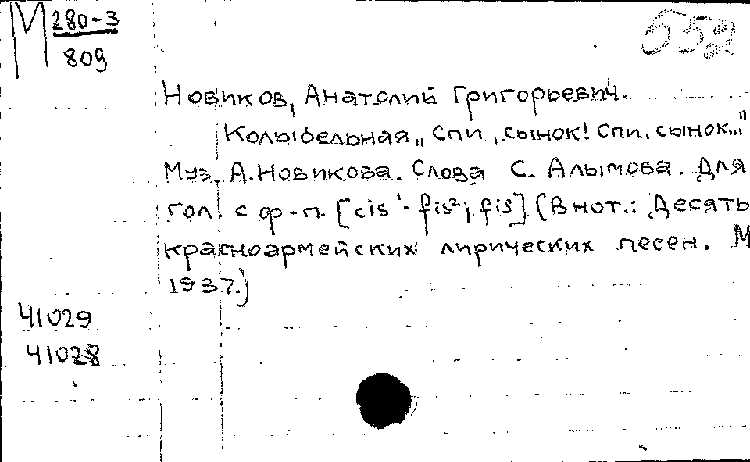 М 280-3
809
552
Новиков, Анатолий Григорьевич.
Колыбельная „Спи, сынок! Спи, сынок..."
Муз. А. Новикова. Слова С. Алымова. Для
гол. с ф-п. [cis¹-fis²; fis] (В нот.: Десять
красноармейских лирических песен. М
1937.)
41029
41028